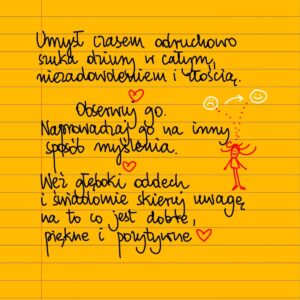 Umysł czasem odruchowo
szuka dziury w całym,
niezadowoleniem i złością.
Obserwuj go.
Naprowadzaj go na inny
sposób myślenia.
Weź głęboki oddech
i świadomie skieruj uwagę
na to co jest dobre,
piękne i pozytywne